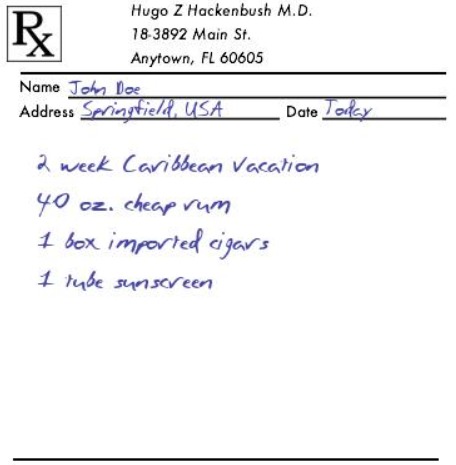 Rx
Hugo Z Hackenbush M.D.
18-3892 Main St.
Anytown, FL 60605
Name John Doe
Address Springfield, USA Date Today
2 week Caribbean Vacation
40 oz. cheap rum
1 box imported cigars
1 tube sunscreen